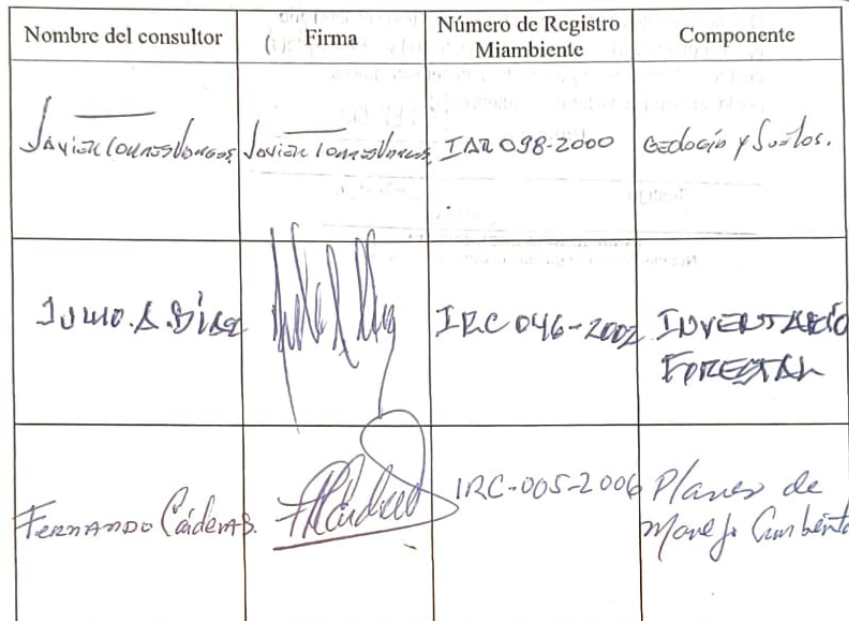 Nombre del consultor
Firma
Número de Registro
Miambiente
Componente
IAR 098-2000
Geología y Suelos.
Julio. A. Díaz
IRC 046-2002
INVENTARIO
FORESTAL
FERNANDO Cárdenas.
IRC-005-2006
Planes de
Manejo Ambienta